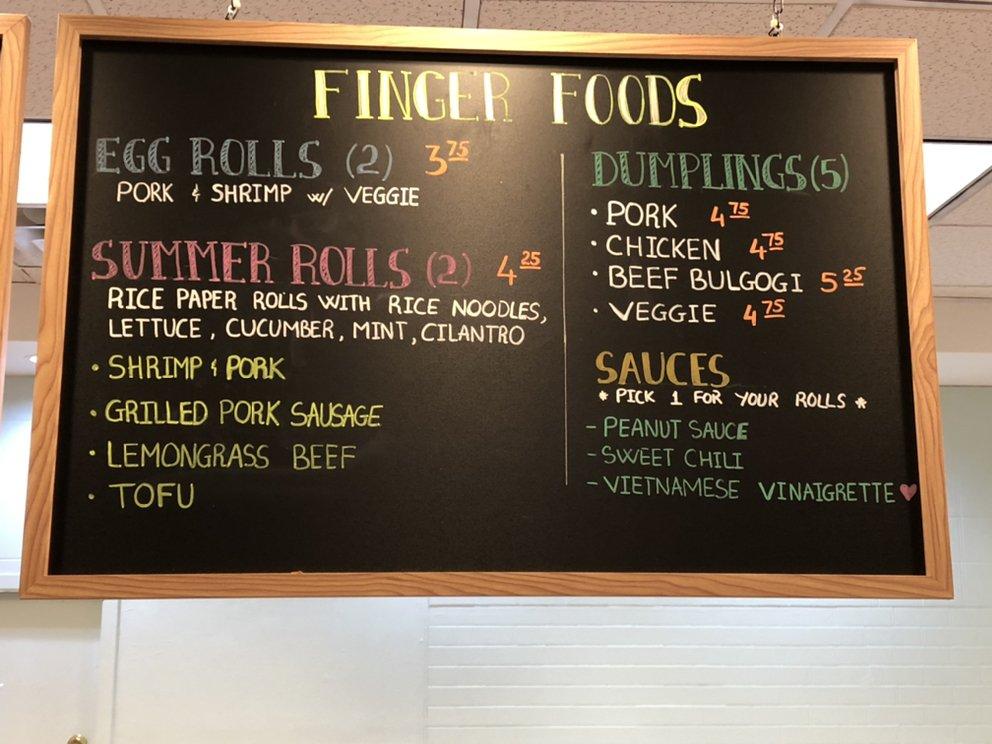 FINGER FOODS
EGG ROLLS (2) 3.75
PORK & SHRIMP w/ VEGGIE
SUMMER ROLLS (2) 4.25
RICE PAPER ROLLS WITH RICE NOODLES,
LETTUCE, CUCUMBER, MINT, CILANTRO
• SHRIMP & PORK
• GRILLED PORK SAUSAGE
• LEMONGRASS BEEF
• TOFU
DUMPLINGS (5)
• PORK 4.75
• CHICKEN 4.75
• BEEF BULGOGI 5.25
• VEGGIE 4.75
SAUCES
* PICK 1 FOR YOUR ROLLS *
- PEANUT SAUCE
- SWEET CHILI
- VIETNAMESE VINAIGRETTE ♥